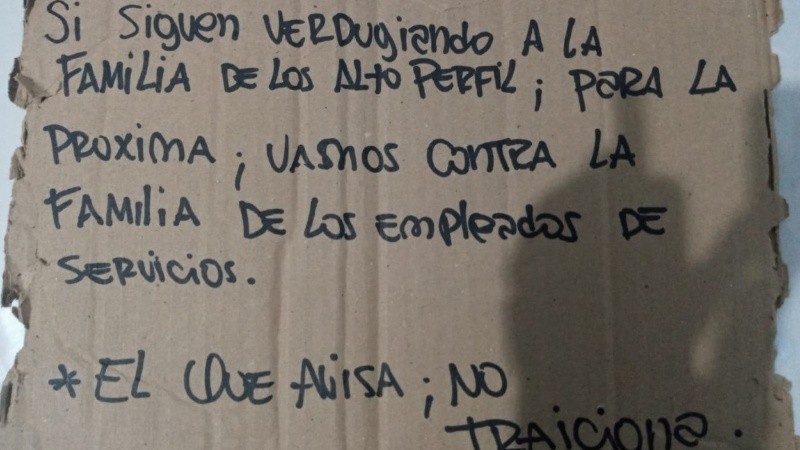 Si siguen VERDugiando A LA
FAMILIA DE LOS Alto PERFIL; PARA LA
PROXIMA; VAMOS CONTRA LA
FAMILIA DE LOS EmpleADOS DE
SERVICIOS.
* EL QUE AVISA; NO
TRAICIONA.